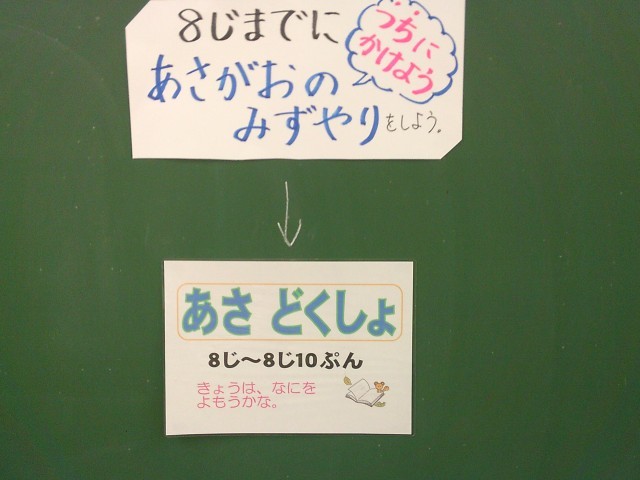 8じまでに
つちに
かけよう
あさがおの
みずやりをしよう。
あさ どくしょ
8じ〜8じ10ぷん
きょうは、なにを
よもうかな。